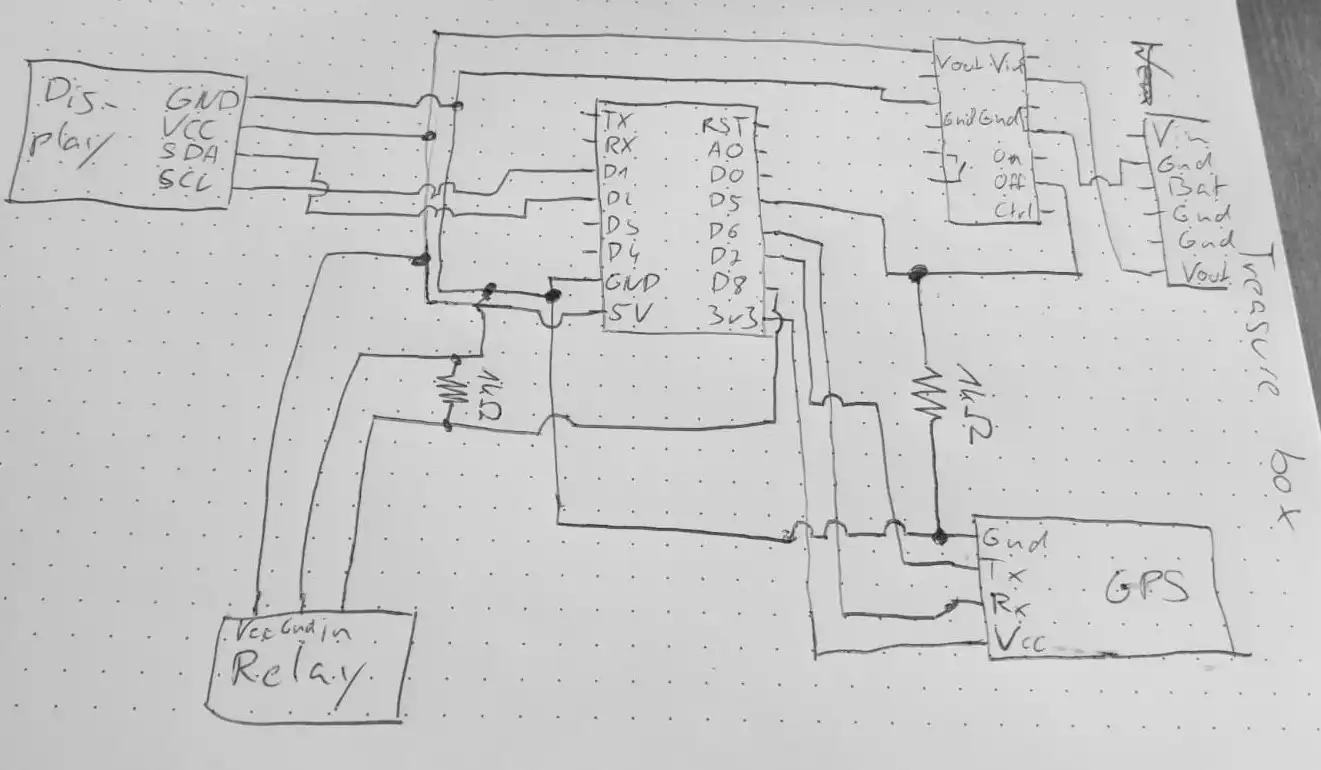 Dis-
play
GND
VCC
SDA
SCL
TX
RX
D1
D2
D3
D4
GND
5V
RST
A0
D0
D5
D6
D7
D8
3v3
Vout Vin
Gnd Gnd
On
Off
Ctrl
Vin
Gnd
Bat
Gnd
Gnd
Vout
Treasure box
1kΩ
1kΩ
Gnd
Tx
Rx
Vcc
GPS
Vcc Gnd in
Relay